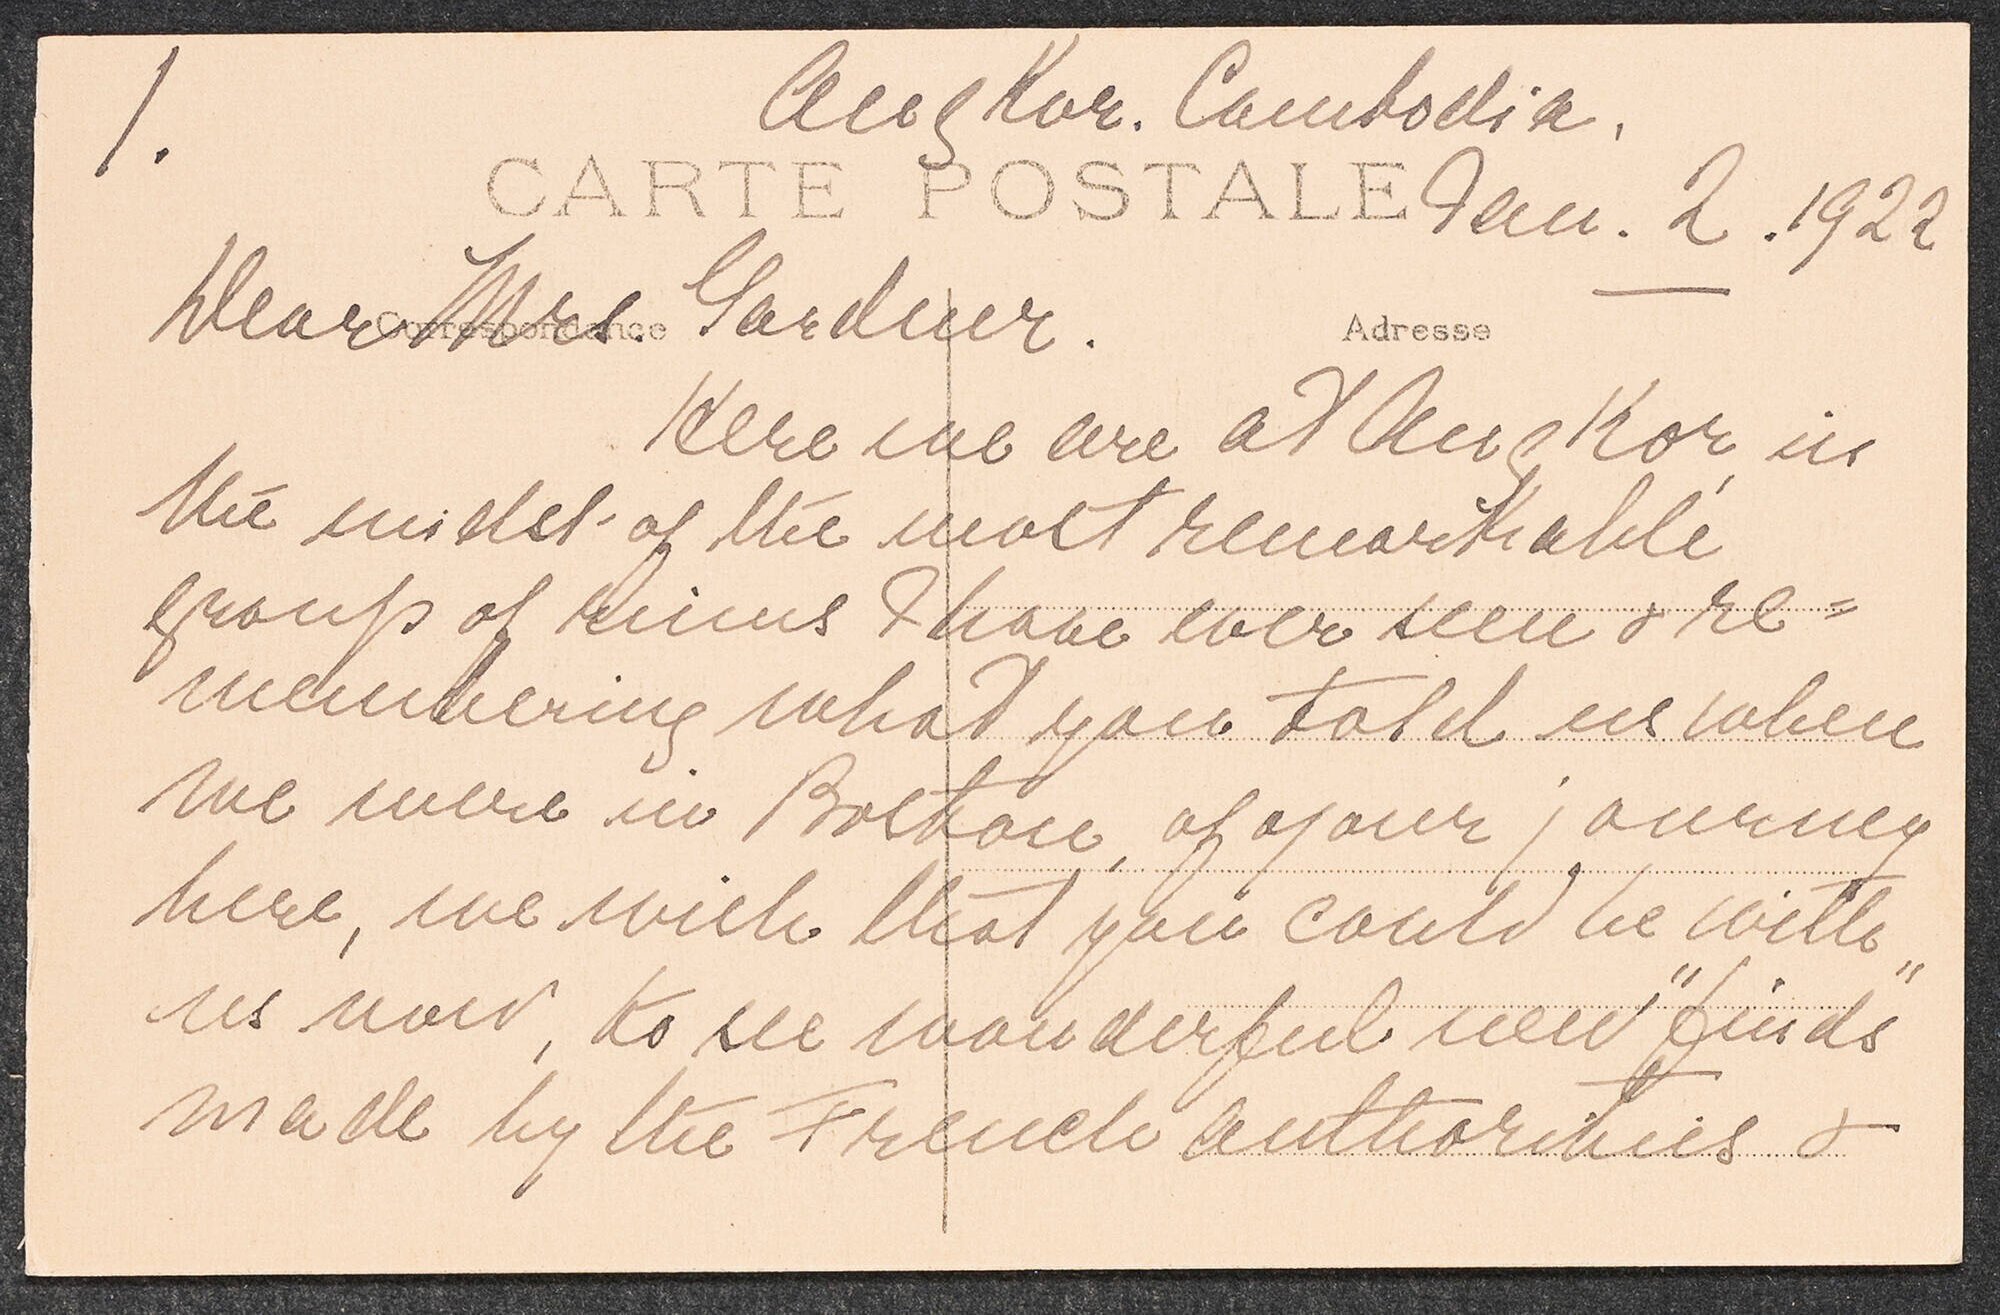 1.
Angkor. Cambodia.
CARTE POSTALE
Jan. 2. 1922
Dear Mrs. Gardner.
Correspondance
Adresse
Here we are at Angkor, in
the midst of the most remarkable
group of ruins I have ever seen & re=
membering what you told us when
we were in Boston, of your journey
here, we wish that you could be with
us now, to see wonderful new "finds"
made by the French authorities &